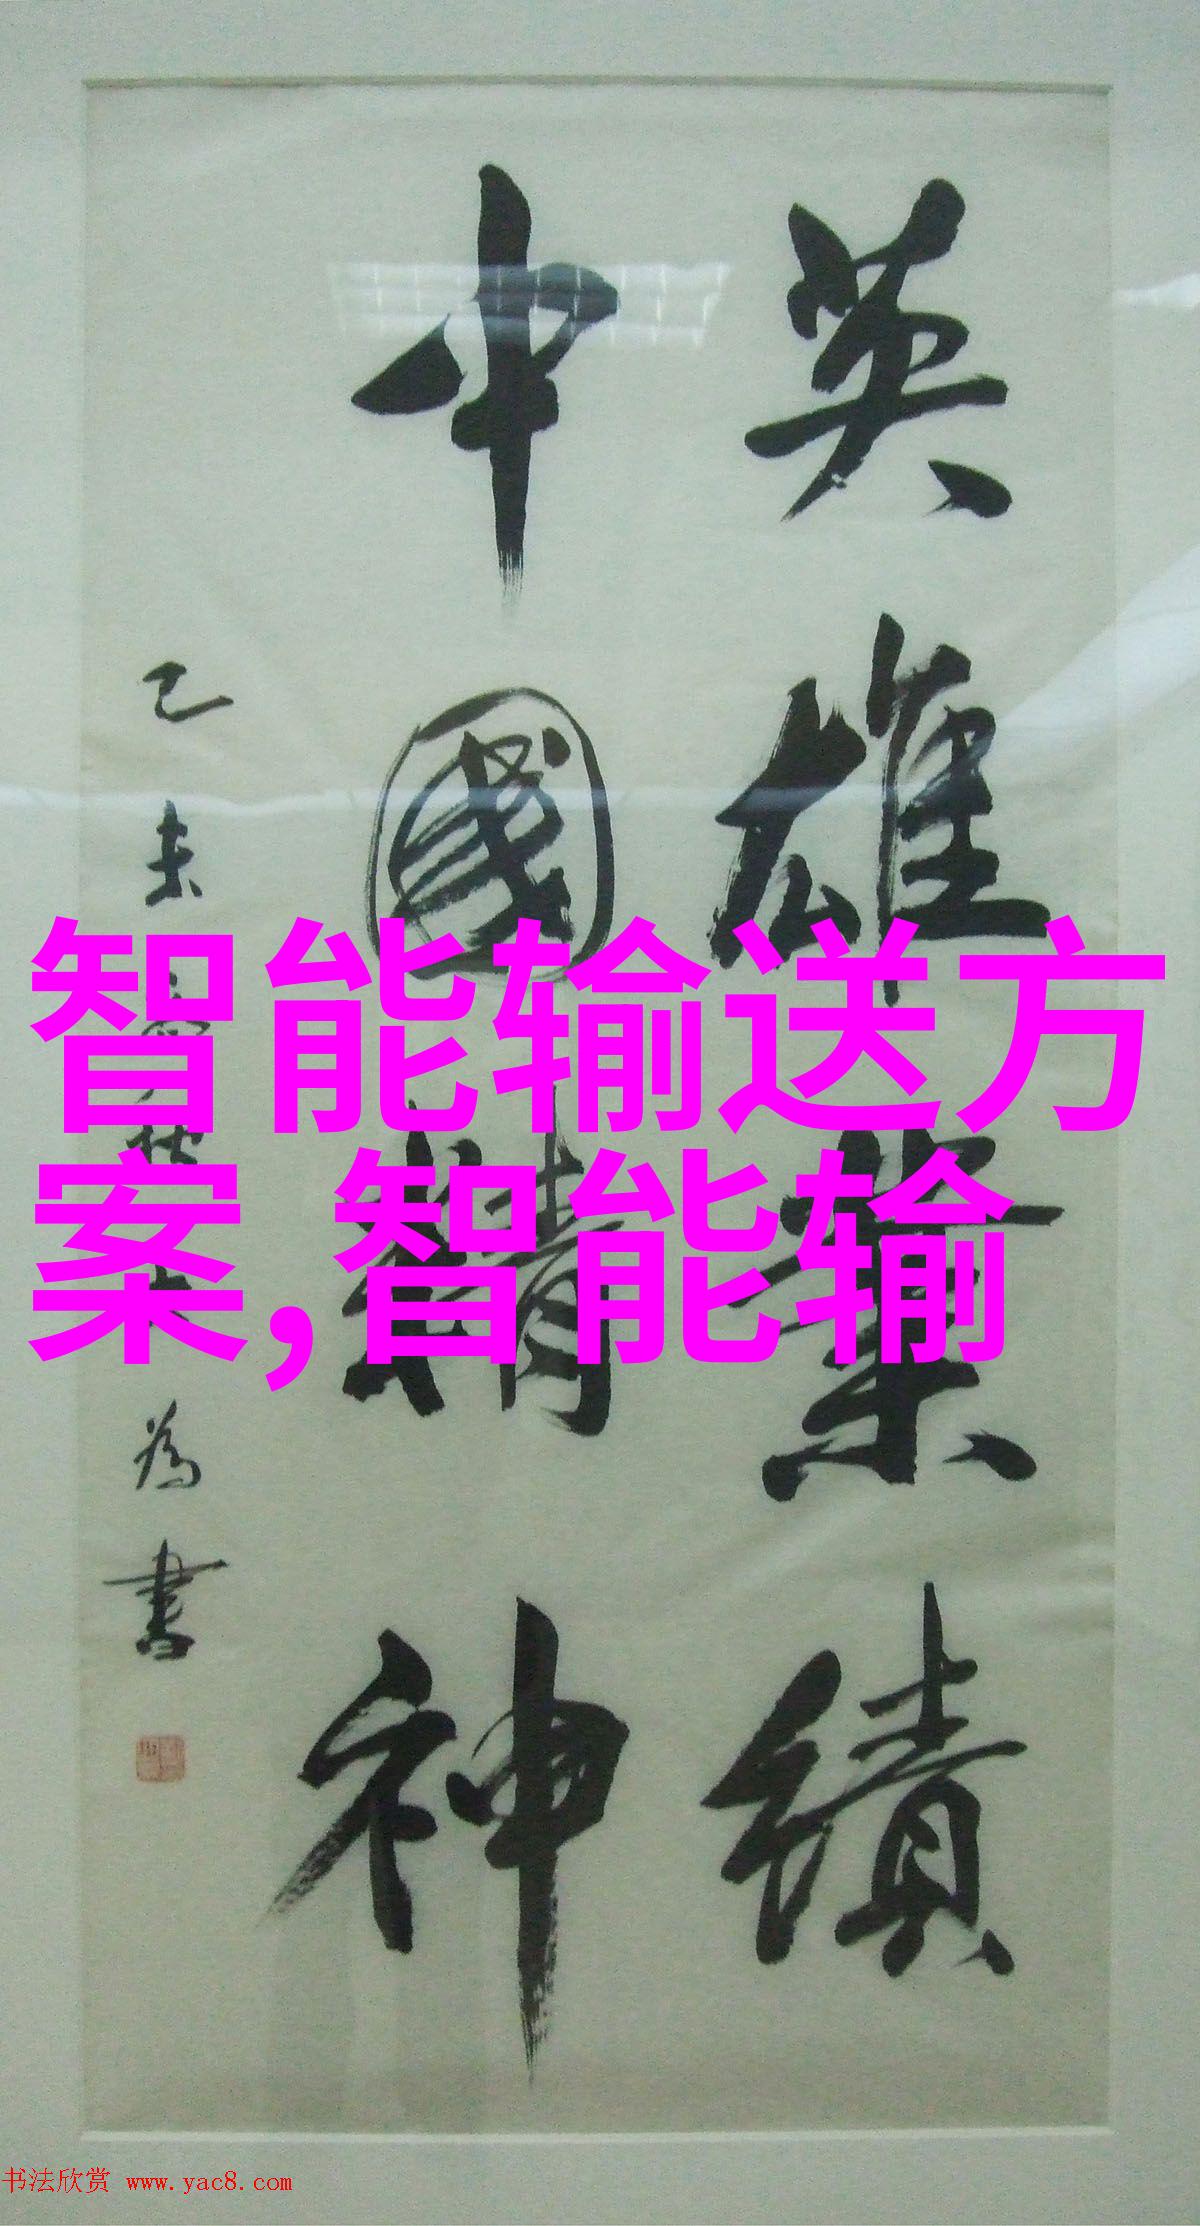 英雄業績
中國精神
己未
為書
智能输送方
案,智能输
书法欣赏 www.yac8.com